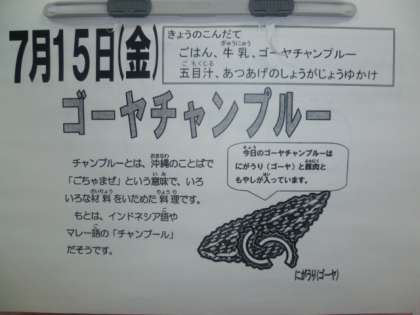 7月15日(金)
きょうのこんだて
ごはん、牛乳、ゴーヤチャンプルー
五目汁、あつあげのしょうがじょうゆかけ
ゴーヤチャンプルー
チャンプルーとは、沖縄のことばで
「ごちゃまぜ」という意味で、いろ
いろな材料をいためた料理です。
もとは、インドネシア語や
マレー語の「チャンプール」
だそうです。
今日のゴーヤチャンプルーは
にがうり(ゴーヤ)と豚肉と
もやしが入っています。
にがうり(ゴーヤ)